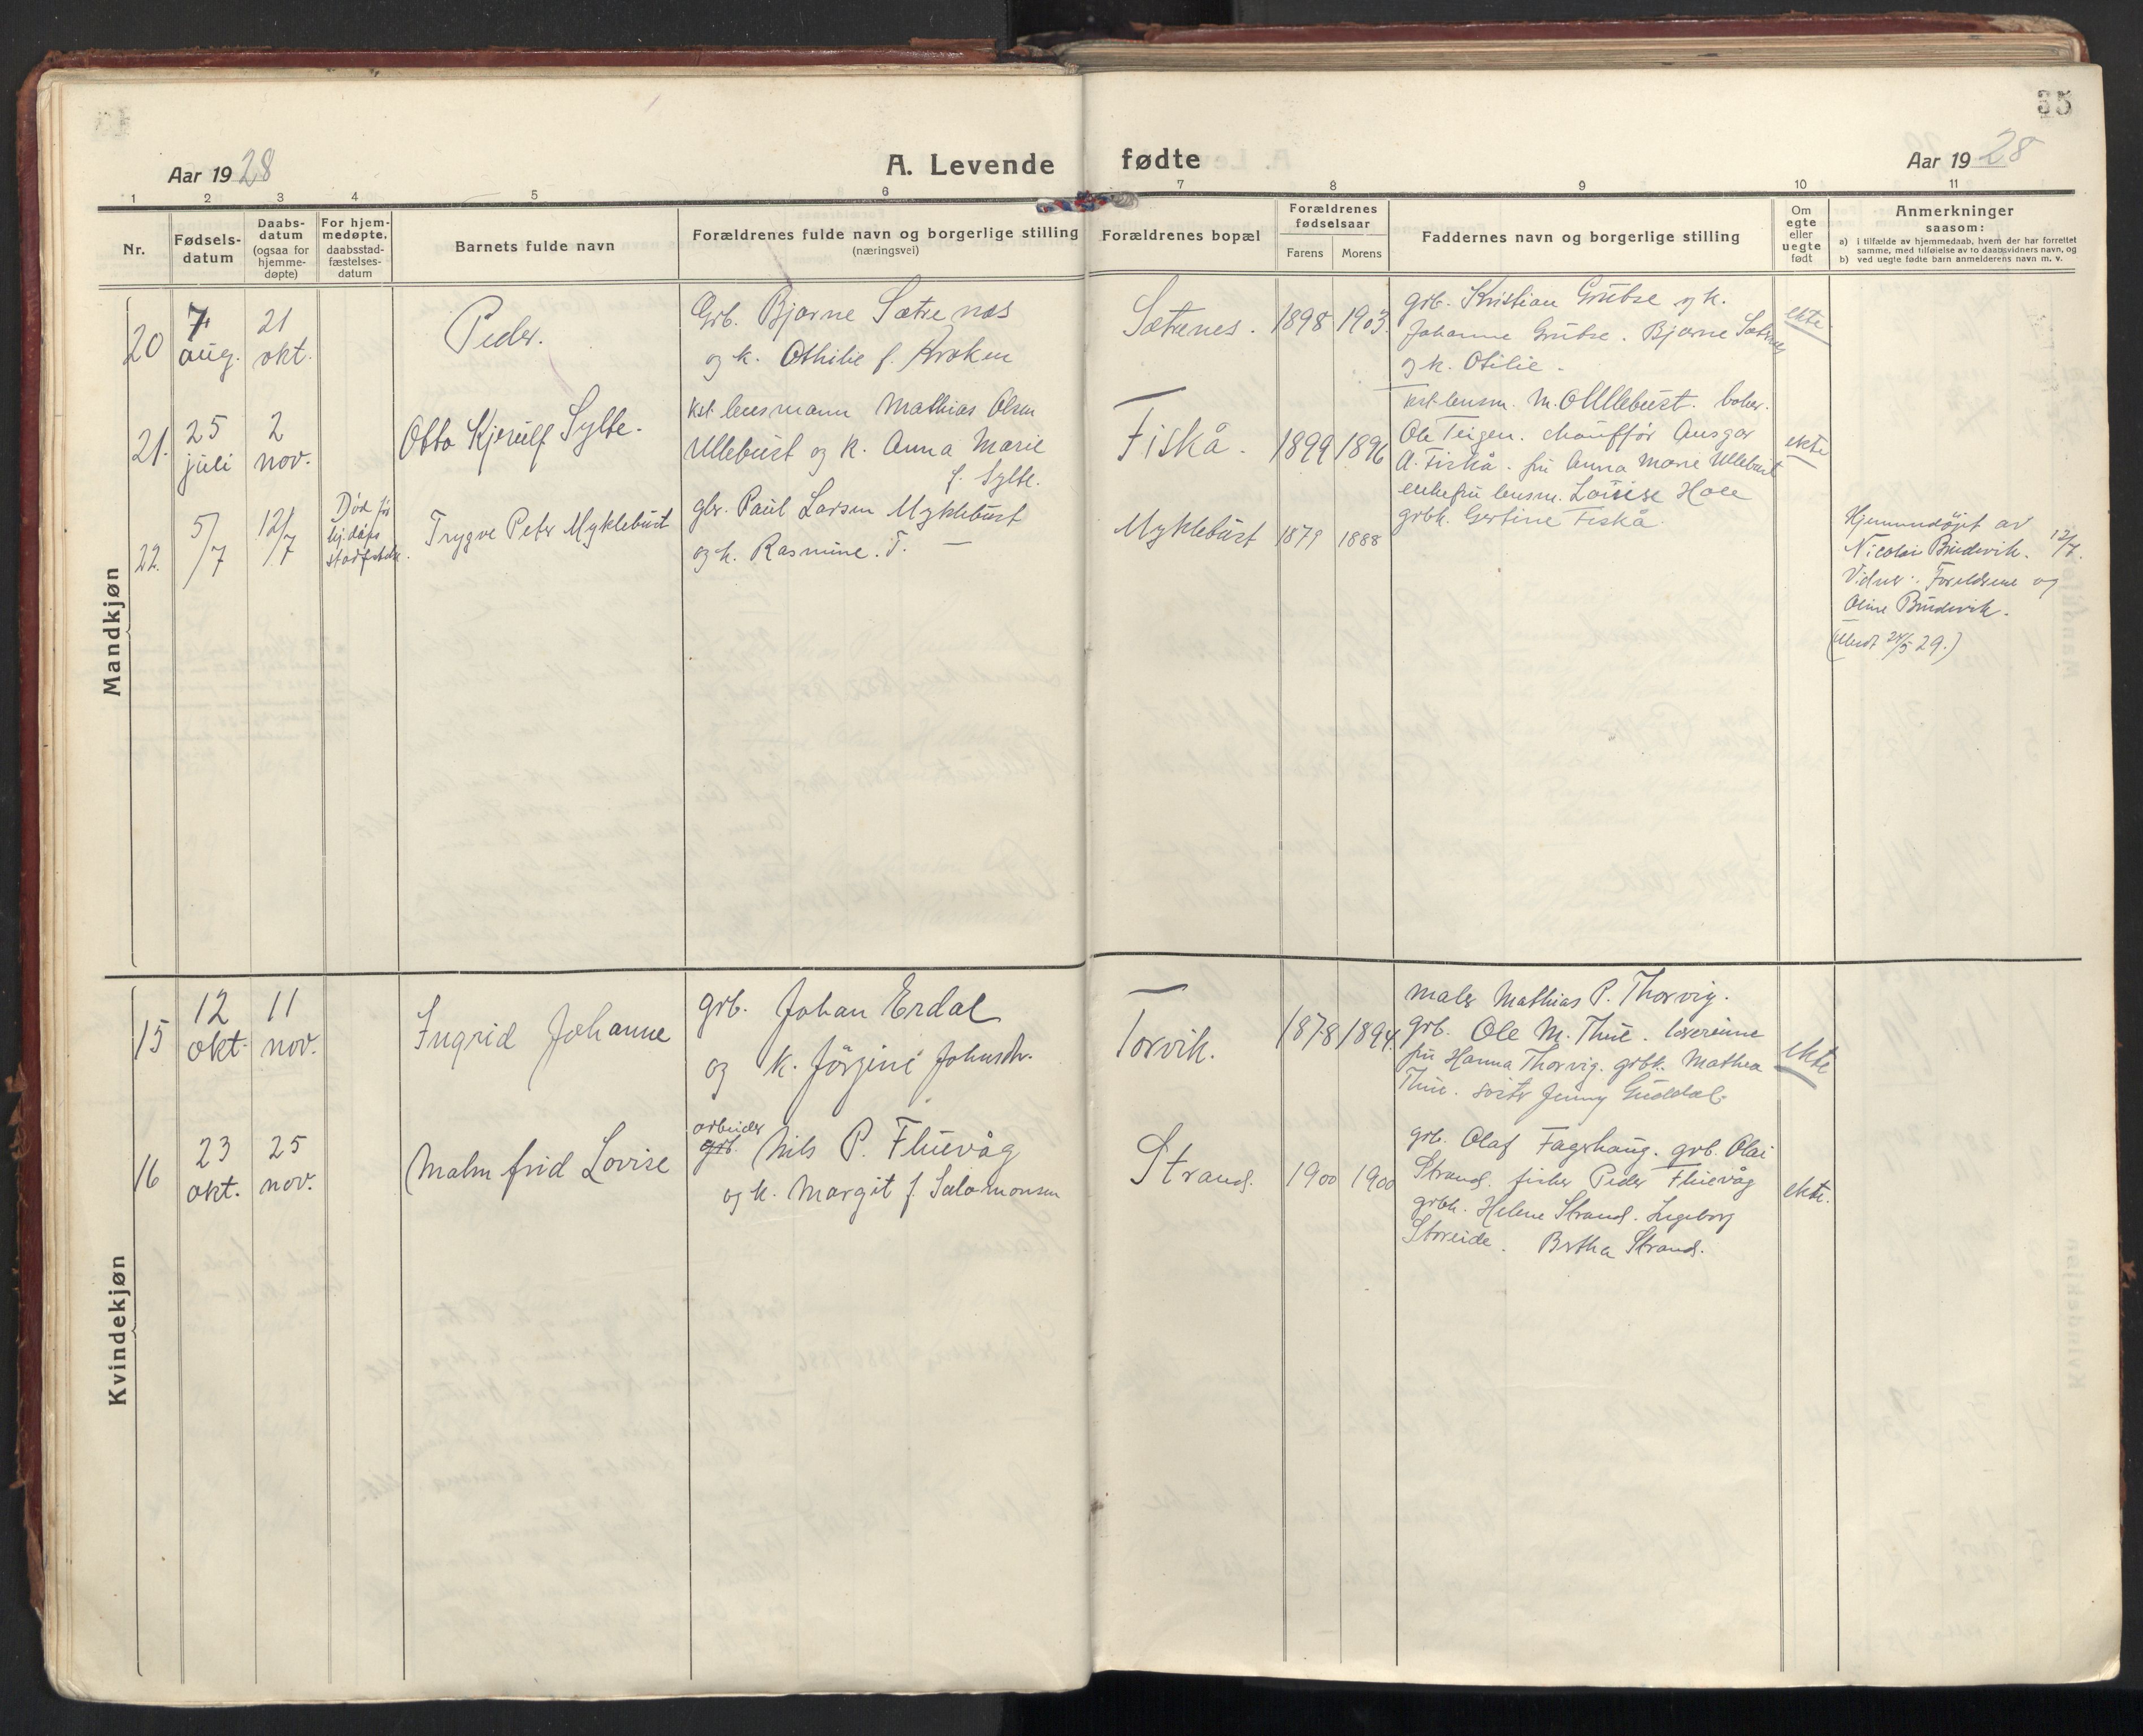 35
Aar 1928
A. Levende fødte
Aar 1928
1 2 3 4 5 6 7 8 9 10 11
Nr.
Fødsels-
datum
Daabs-
datum
(ogsaa for
hjemme-
døpte)
For hjem-
medøpte,
daabsstad-
fæstelses-
datum
Barnets fulde navn
Forældrenes fulde navn og borgerlige stilling
(næringsvei)
Forældrenes bopæl
Forældrenes
fødselsaar
Farens
Morens
Faddernes navn og borgerlige stilling
Om
egte
eller
uegte
født
Anmerkninger
saasom:
a) i tilfælde av hjemmedaab, hvem der har forrettet
samme, med tilføielse av to daabsvidners navn, og
b) ved uegte fødte barn anmelderens navn m. v.
Mandkjøn
20
7
aug.
21
okt.
Peder.
Grb. Bjarne Sætrenes
og k. Othilie f. Kroken
Sætrenes.
1898
1903.
grb. Kristian Grubse og k.
Johanne Grubse. Bjarne Sætrenes
og k. Otilie.
ekte.
21.
25
juli
2
nov.
Otto Kjerulf Sylte.
kst. lensmann Mathias Olsen
Ullebust og k. Anna Marie
f. Sylte.
Fiskå.
1899
1896
kst. lensm. M. O Ullebust. baker.
Ole Teigen. chauffør Ansgar
A. Fiskå. fru Anna Marie Ullebust
enkefru lensm. Louise Hole
grbk. Gertine Fiskå.
ekte
22.
5/7
12/7
Død før
hj.dåps
stadfestelse.
Trygve Peter Myklebust
gbr. Paul Larsen Myklebust
og k. Rasmine. T. —
Myklebust
1879
1888
Hjemmedøpt av
Nicolai Brudevik. 12/7.
Vidner: Foreldrene og
Oline Brudevik.
(Meldt 24/5 29.)
Kvindekjøn
15
12
okt.
11
nov.
Ingrid Johanne
grb. Johan Erdal
og k. Jørgine Johnsdtr.
Torvik.
1878
1894.
maler Mathias P. Thorvig.
grb. Ole M. Thue. lærerinne
fru Hanna Thorvig. grbk. Mathea
Thue. søster Jenny Guddal.
ekte
16
23
okt.
25
nov.
Malmfrid Lovise
arbeider
grb. Nils P. Fluevåg
og k. Margit f. Salomonsen
Strand.
1900
1900
grb. Olaf Fagerhaug. grb. Olai
Strand. fisker Peder Fluevåg
grbk. Helene Strand. Ingeborg
Storeide. Bertha Strand.
ekte.